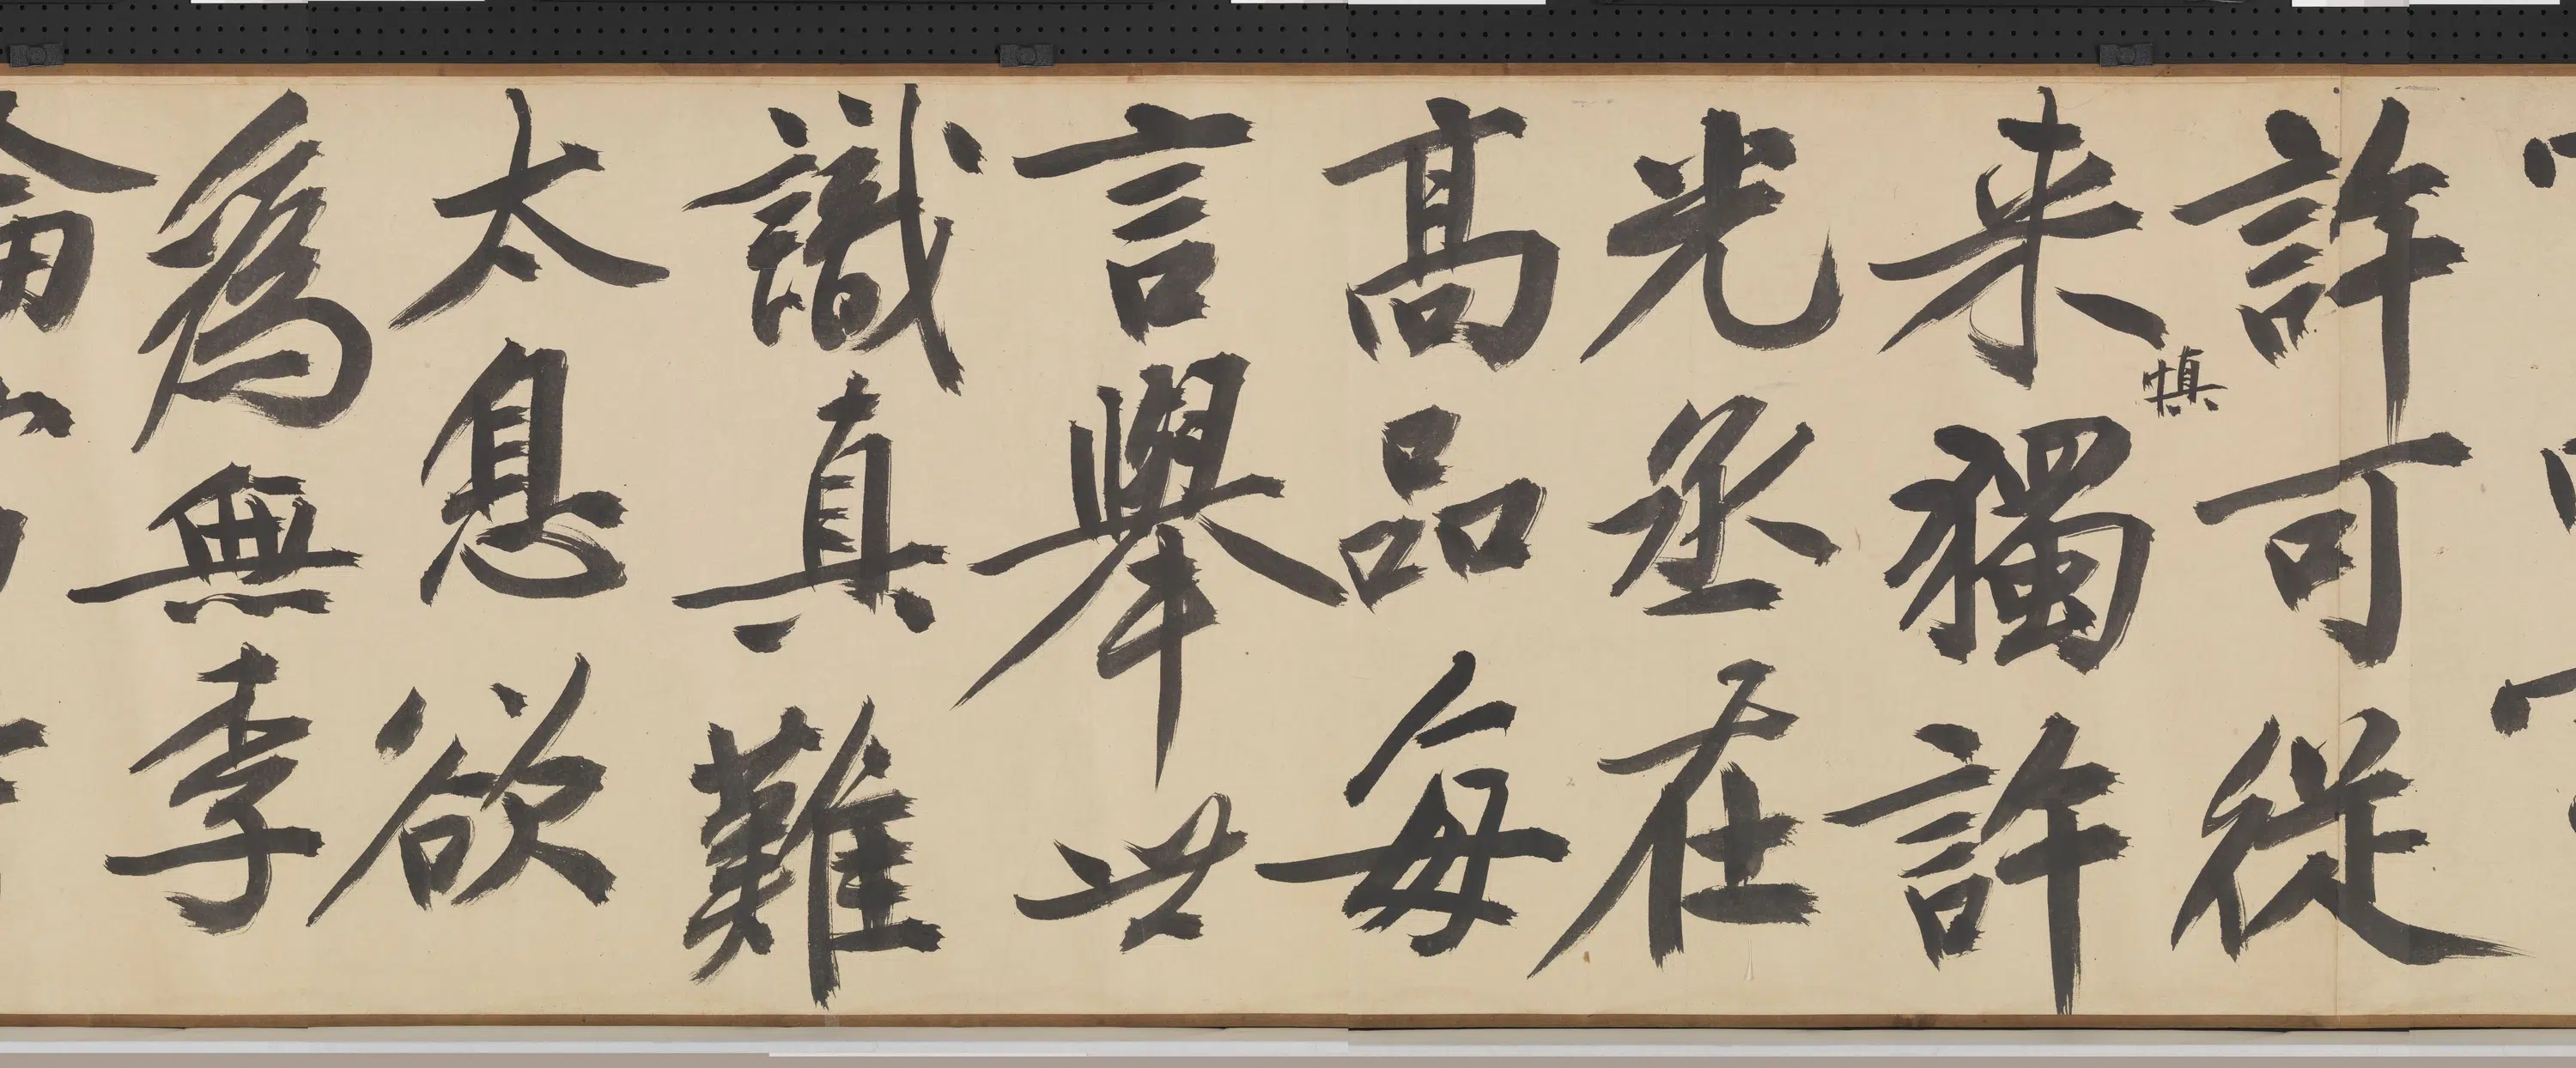 許可從
慎
来獨許
光丞在
髙品每
言舉世
識真難
太息欲
為無李